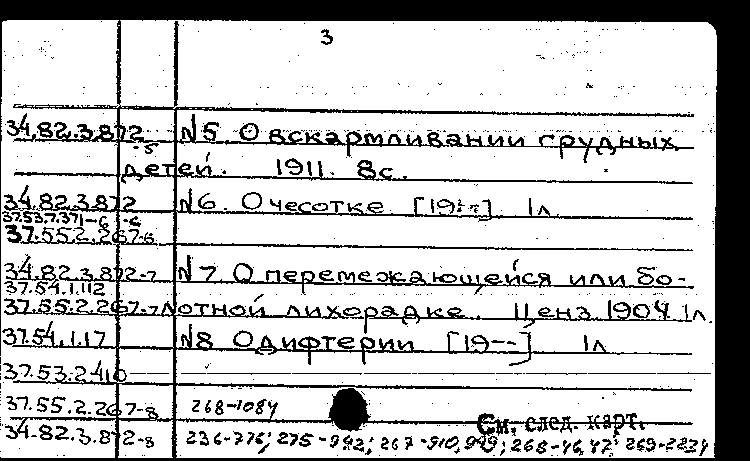 3
34.82.3.872-5 N5 О вскармливании грудных
детей. 1911. 8с.
34.82.3.872 N6. О чесотке [19--] 1л
37.53.7.371-6 -6
37.55.2.267-6
34.82.3.872-7 N7 О перемежающейся или бо-
37.54.1.112
37.55.2.267-7 лотной лихорадке. Ценз. 1904 1л.
37.54.1.17 N8 О дифтерии [19--] 1л
37.53.2.410
37.55.2.267-8 268-1084
См. след. карт.
34.82.3.872-8 236-776; 275-942; 267-910,949; 268-46,47; 269-2224